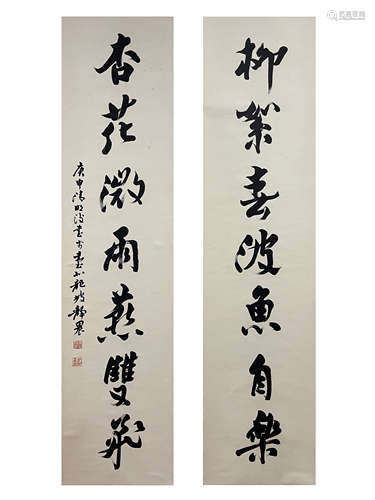 柳絮春波魚自樂
杏花微雨燕雙飛
庚申清明後書於